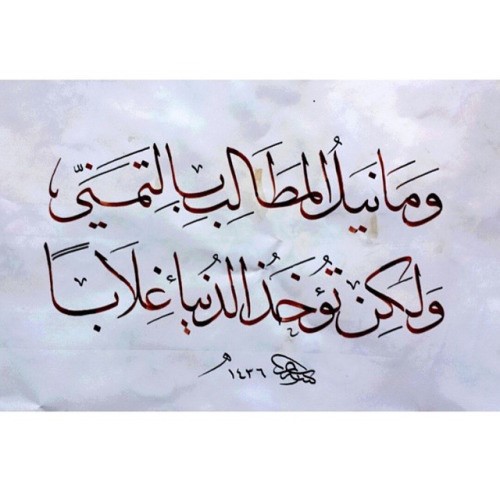 وَمَا نَيلُ المَطَالِبِ بِالتَمَنِّي
وَلَكِن تُؤخَذُ الدُنيَا غِلَابًا
١٤٣٦ هـ